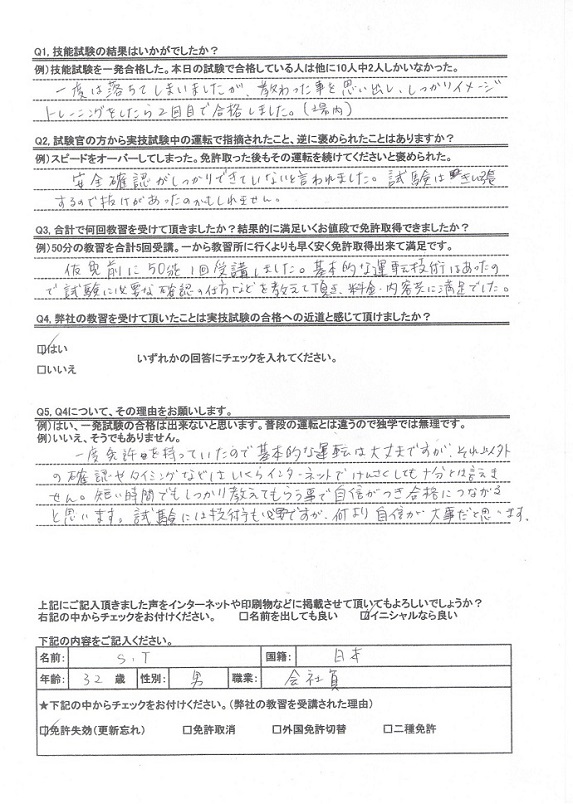 Q1, 技能試験の結果はいかがでしたか？
例）技能試験を一発合格した。本日の試験で合格している人は他に10人中2人しかいなかった。
一度は落ちてしまいましたが、教わった事を思い出し、しっかりイメージ
トレーニングをしたら2回目で合格しました。(場内)
Q2, 試験官の方から実技試験中の運転で指摘されたこと、逆に褒められたことはありますか？
例）スピードをオーバーしてしまった。免許取った後もその運転を続けてくださいと褒められた。
安全確認がしっかりできていないと言われました。試験は緊張
するので抜けがあったのかもしれません。
Q3, 合計で何回教習を受けて頂きましたか？結果的に満足いくお値段で免許取得できましたか？
例）50分の教習を合計5回受講。一から教習所に行くよりも早く安く免許取得出来て満足です。
仮免前に50分1回受講しました。基本的な運転技術はあったの
で試験に必要な確認の仕方などを教えて頂き、料金・内容共に満足でした。
Q4, 弊社の教習を受けて頂いたことは実技試験の合格への近道と感じて頂けましたか？
☑はい
いずれかの回答にチェックを入れてください。
□いいえ
Q5, Q4について、その理由をお願いします。
例）はい、一発試験の合格は出来ないと思います。普段の運転とは違うので独学では無理です。
例）いいえ、そうでもありません。
一度免許を持っていたので基本的な運転は大丈夫ですが、それ以外
の確認やタイミングなどはいくらインターネットでけんさくしても十分とは言えま
せん。短い時間でもしっかり教えてもらう事で自信がつき合格につながる
と思います。試験には技術も必要ですが、何より自信が大事だと思います。
上記にご記入頂きました声をインターネットや印刷物などに掲載させて頂いてもよろしいでしょうか？
右記の中からチェックをお付けください。 □名前を出しても良い ☑イニシャルなら良い
下記の内容をご記入ください。
名前: S.T 国籍: 日本
年齢: 32 歳 性別: 男 職業: 会社員
★下記の中からチェックをお付けください。（弊社の教習を受講された理由）
☑免許失効（更新忘れ） □免許取消 □外国免許切替 □二種免許